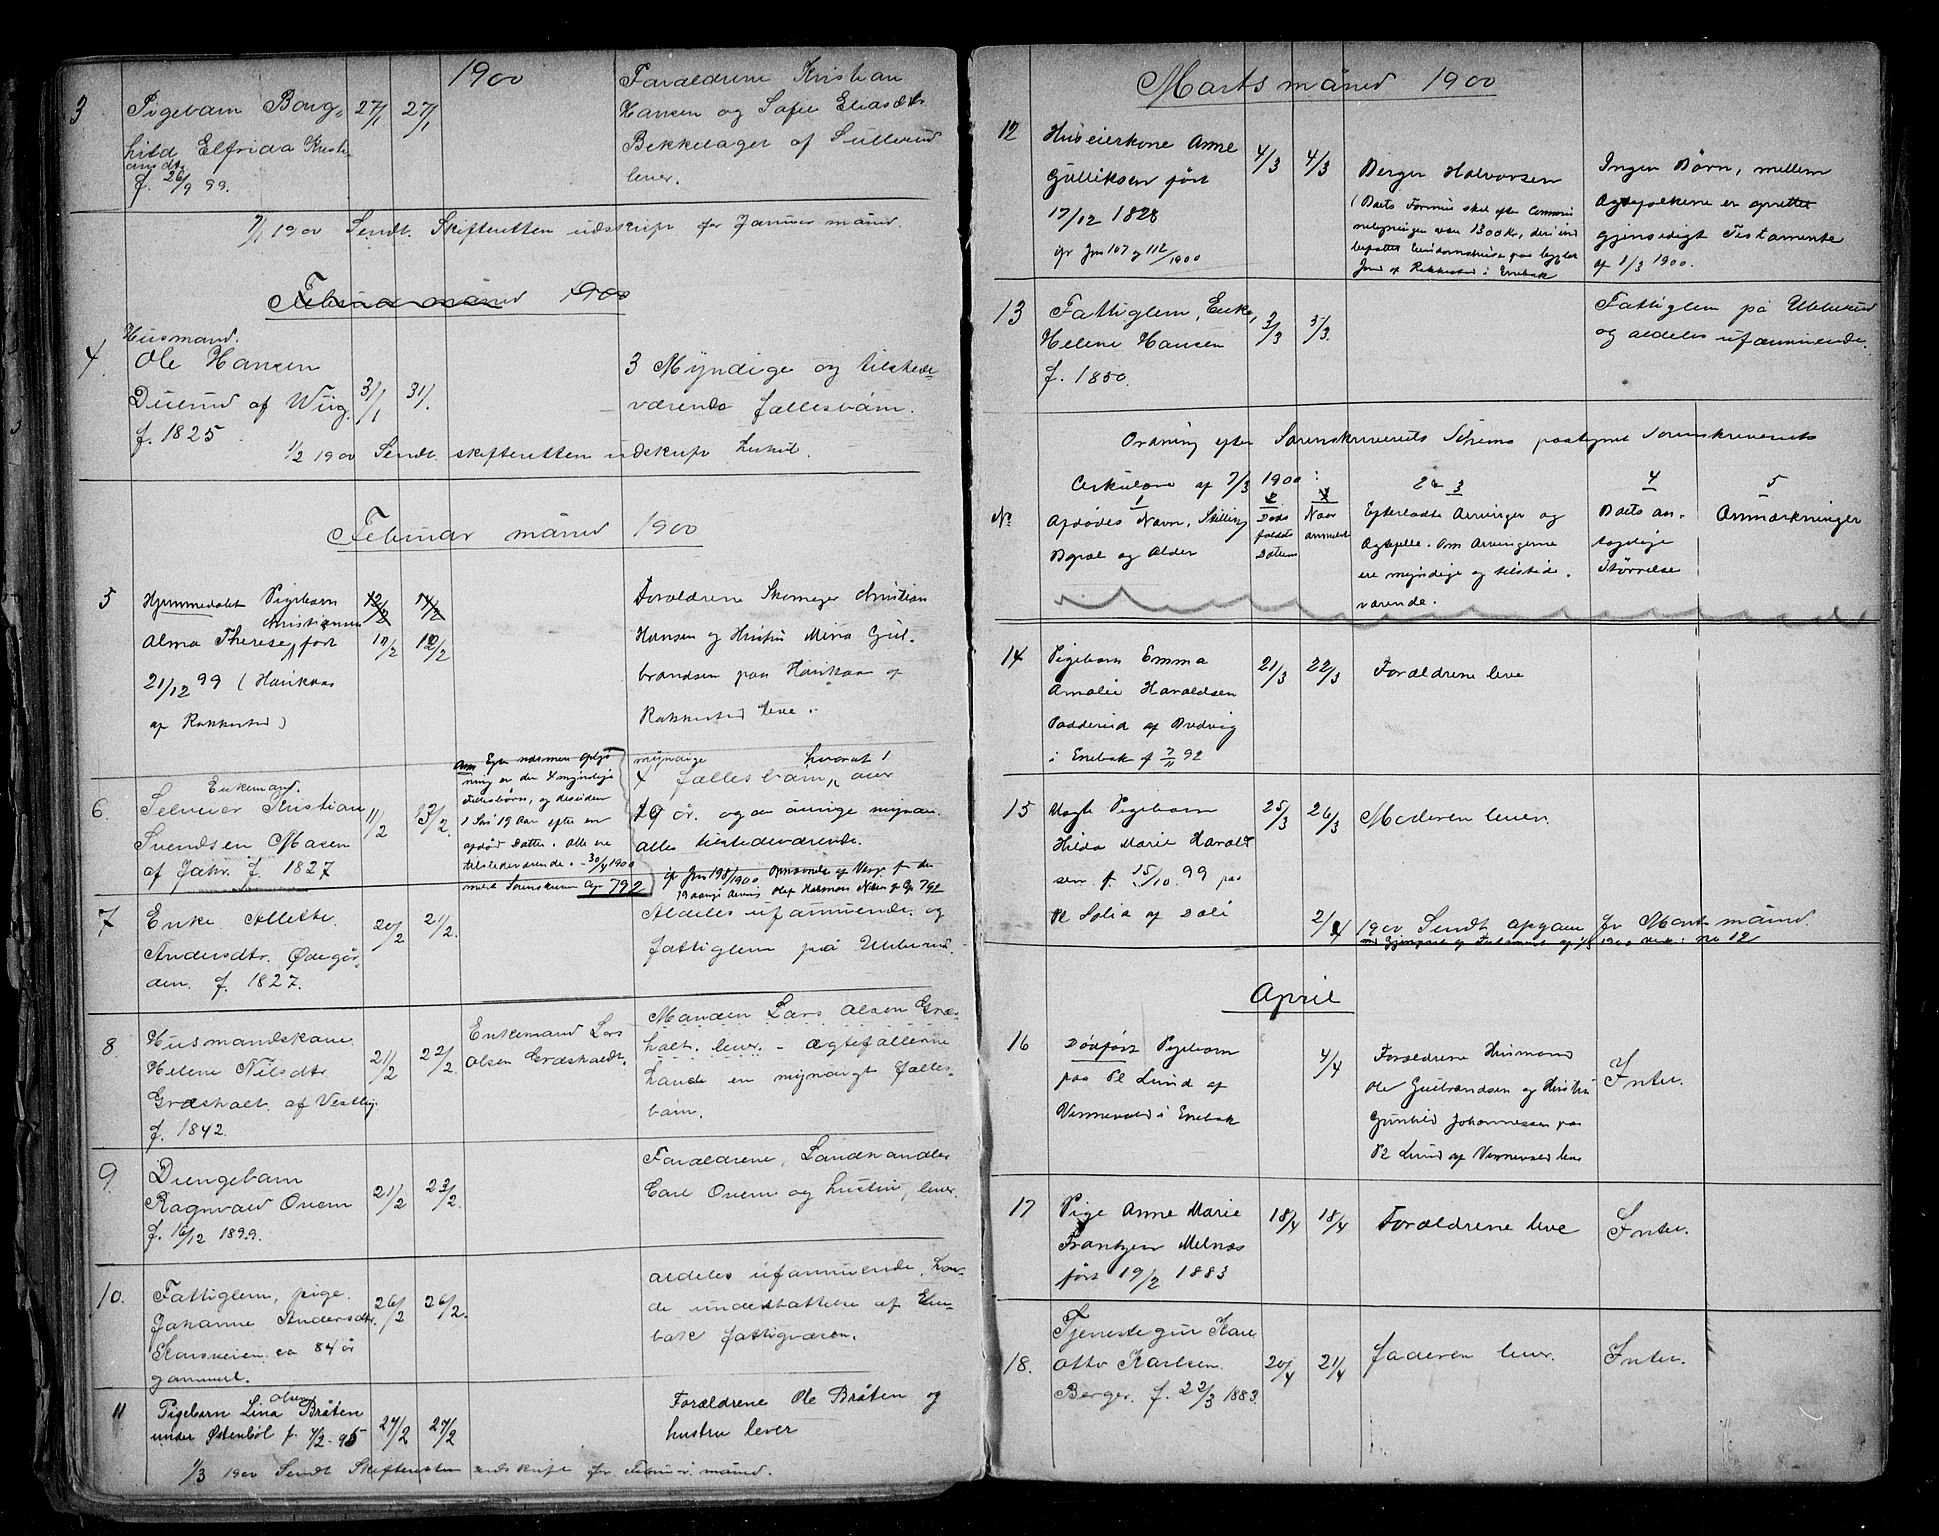 1900
3
Pigebarn Borg-
hild Elfrida Kristi-
ansdtr
f. 26/9 99.
27/1
27/1
Forældrene Kristian
Hansen og Sofie Eliasdtr
Bekkelager af Sullerud
lever.
1900 Sendt Skifteretten udskrift for Januar måned.
Februar måned 1900
4.
Husmand.
Ole Hansen
Duerud af Wiig.
f. 1825
31/1
31/1
3 Myndige og tilstede-
værende fællesbarn.
1/2 1900 Sendt skifteretten udskrift
Februar måned 1900
5
Hjemmedøbt Pigebarn
Kristiansen
Alma Therese, født
21/12 99 (Haukaas
af Rakkestad)
12/2
10/2
12/2
Forældrene Skomager Kristian
Hansen og Hustru Mina Gul-
brandsen paa Haukaas af
Rakkestad leve.
6.
Enkemand.
Selveier Kristian
Svendsen Moxen
af Jahr. f. 1827
11/2
13/2.
Anm Efter nærmere Oplys
ning er der 4 myndige
Fællesbørn, og desuden
1 Søn 19 Aar efter en
afdød Datter. Alle ere
tilstedeværende. - 30/4 1900
meldt Sorenskriveren Cop 792
myndige hvoraf 1
4 fællesbarn, over
19 år. og de øvrige myndi.
alles tilstedeværende.
jfr Jrn 198/1900
19 aarige Arving Olaf Hermans Næsen jfr Cop 792
7
Enke Allette
Andersdtr. Ødegår-
den. f. 1827.
20/2
21/2.
Aldeles uformuende og
fattiglem på Ubberud.
8.
Husmandskone
Helene Nilsdtr
Græsholt af Vestby
f. 1842.
21/2
22/2.
Enkemand Lars
Olsen Græsholdt.
Manden Lars Olsen Græs-
holt. lever - Ægtefællerne
havde en myndigt fælles-
barn.
9.
Drengebarn
Ragnvald Ovem
f. 16/12 1899.
21/2
23/2.
Forældrene, Landhandler
Carl Ovem og hustru, lever.
10.
Fattiglem, pige.
Johanne Andersdtr.
Korsveien. ca 84 år
gammel.
26/2
26/2.
Aldeles uformuende, hav-
de understøttelse af Ene-
bak fattigvæsen.
11
Olsen
Pigebarn Lina Bråten
under Østenbøl f. 7/2-95
27/2
27/2
Forældrene Ole Bråten og
hustru lever
1/3 1900 Sendt Skifteretten udskrift for Februar måned.
Marts måned 1900
12
Huseierkone Anne
Gulliksen født
17/12 1828
jfr Jrn 107 og 112/1900
4/3
4/3
Berger Halvorsen
(Boets Formue skal efter Comune
beligningen være 1300 Kr, deri ind
befattet Eiendomshuse paa bygslet
Jord af Rakkestad i Enebak
Ingen Børn, mellem
Ægtefolkene er oprettet
gjensidigt Testamente
af 1/3 1900.
13
Fattiglem, Enke,
Helene Hansen
f. 1850.
2/3
5/3.
Fattiglem på Ubberud
og aldeles uformuende.
Ordning efter Sorenskriverets Schema paategnet Sorenskriverets
Cirkulære af 7/3 1900:
No
1
Afdødes Navn, Stilling,
Bopæl og Alder
Døds
faldets
Datum
Naar
anmeldt
2 & 3
Efterladte Arvinger og
Ægtefælle. Om Arvingerne
ere myndige og tilstede-
værende.
4
Boets an-
tagelige
Størrelse
5
Anmærkninger
14
Pigebarn Emma
Amalie Haraldsen
Padderud af Bredvig
i Enebak f 7/11 92
21/3
22/3
Forældrene leve
15
Uægte Pigebarn
Hilda Marie Harald
sen f. 15/10. 99 paa
Pl Solia af Dæli
25/3
26/3
Moderen lever.
2/4 1900 Sendt opgave for Marts måned.
med Gjenpart af Testament af 1/3 1900 No 12
April
16
Dødfødt Pigebarn
paa Pl Lund af
Vennevold i Enebak
4/4
Forældrene Husmand
Ole Gulbrandsen og Hustru
Gunhild Johannessen paa
Pl Lund af Vennevold leve
Intet.
17
Pige Anne Marie
Frantzen Melnæs
født 19/2 1883
18/4
18/4
Forældrene leve
Intet.
18.
Tjenestegut Karl
Otto Karlsen.
Berger. f. 22/3 1883.
20/4
21/4
Faderen lever.
Intet.